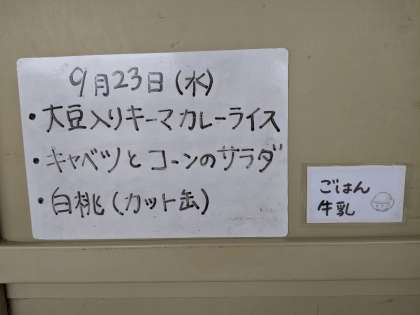 9月23日(水)
・大豆入りキーマカレーライス
・キャベツとコーンのサラダ
・白桃(カット缶)
ごはん
牛乳